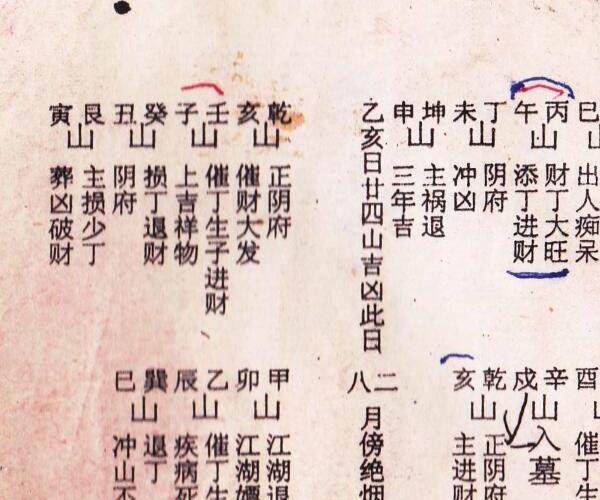 巳山 出人痴呆
丙午山 财丁大旺
添丁进财
丁未山 阴府
冲凶
坤申山 主祸退
三年吉
乙亥日廿四山吉凶此日
乾亥山 正阴府
催财大发
壬子山 催丁生子进财
上吉祥物
癸丑山 损丁退财
阴府
艮寅山 主损少丁
葬凶破财
酉山 催丁生
辛戌山 入墓
乾亥山 正阴府
主进财
二八月傍绝烟
甲卯山 江湖退
江湖嫖
乙辰山 催丁生
疾病死
巽巳山 退丁
冲山不